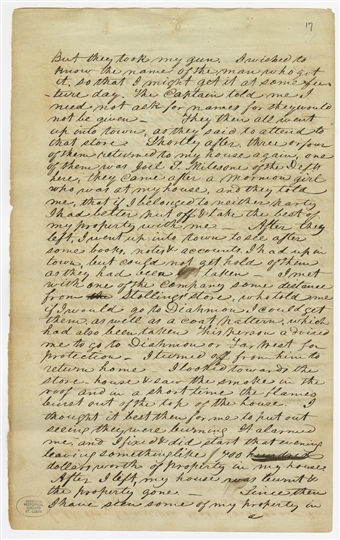 17
But they took my gun. I wished to
know the name of the man who got
it, so that I might get it at some fu-
-ture day. The Captain told me I
need not ask for names for they would
not be given - They then all went
up into town, as they said to attend to
that store Shortly after, three or four
of them returned to my house again, one
of them was Joel F. Miles one of the Defts
here, they came after a Mormon girl
who was at my house, and they told
me, that if I belonged to neither party
I had better put off & take the best of
my property with me - After they
left, I went up into town to see after
some books, notes & accounts, I had up in
town, but could not get hold of them
as they had been taken - I met
with one of the Company some distance
from Stollings store, who told me
if I would go to Diahmon I could get
them, as well as a coat pattern, which
had also been taken This person advised
me to go to Diahmon or Far West for
protection - I turned off from him to
return home I looked towards the
store house & saw the smoke in the
roof and in a short time the flames
burst out of the top of the house - I
thought it best then for me to put out
seeing they were burning It alarmed
me, and I fixed & did start that evening
leaving something like 700 hundred
dollars worth of property in my house
After I left, my house was burnt &
the property gone - Since then
I have seen some of my property in